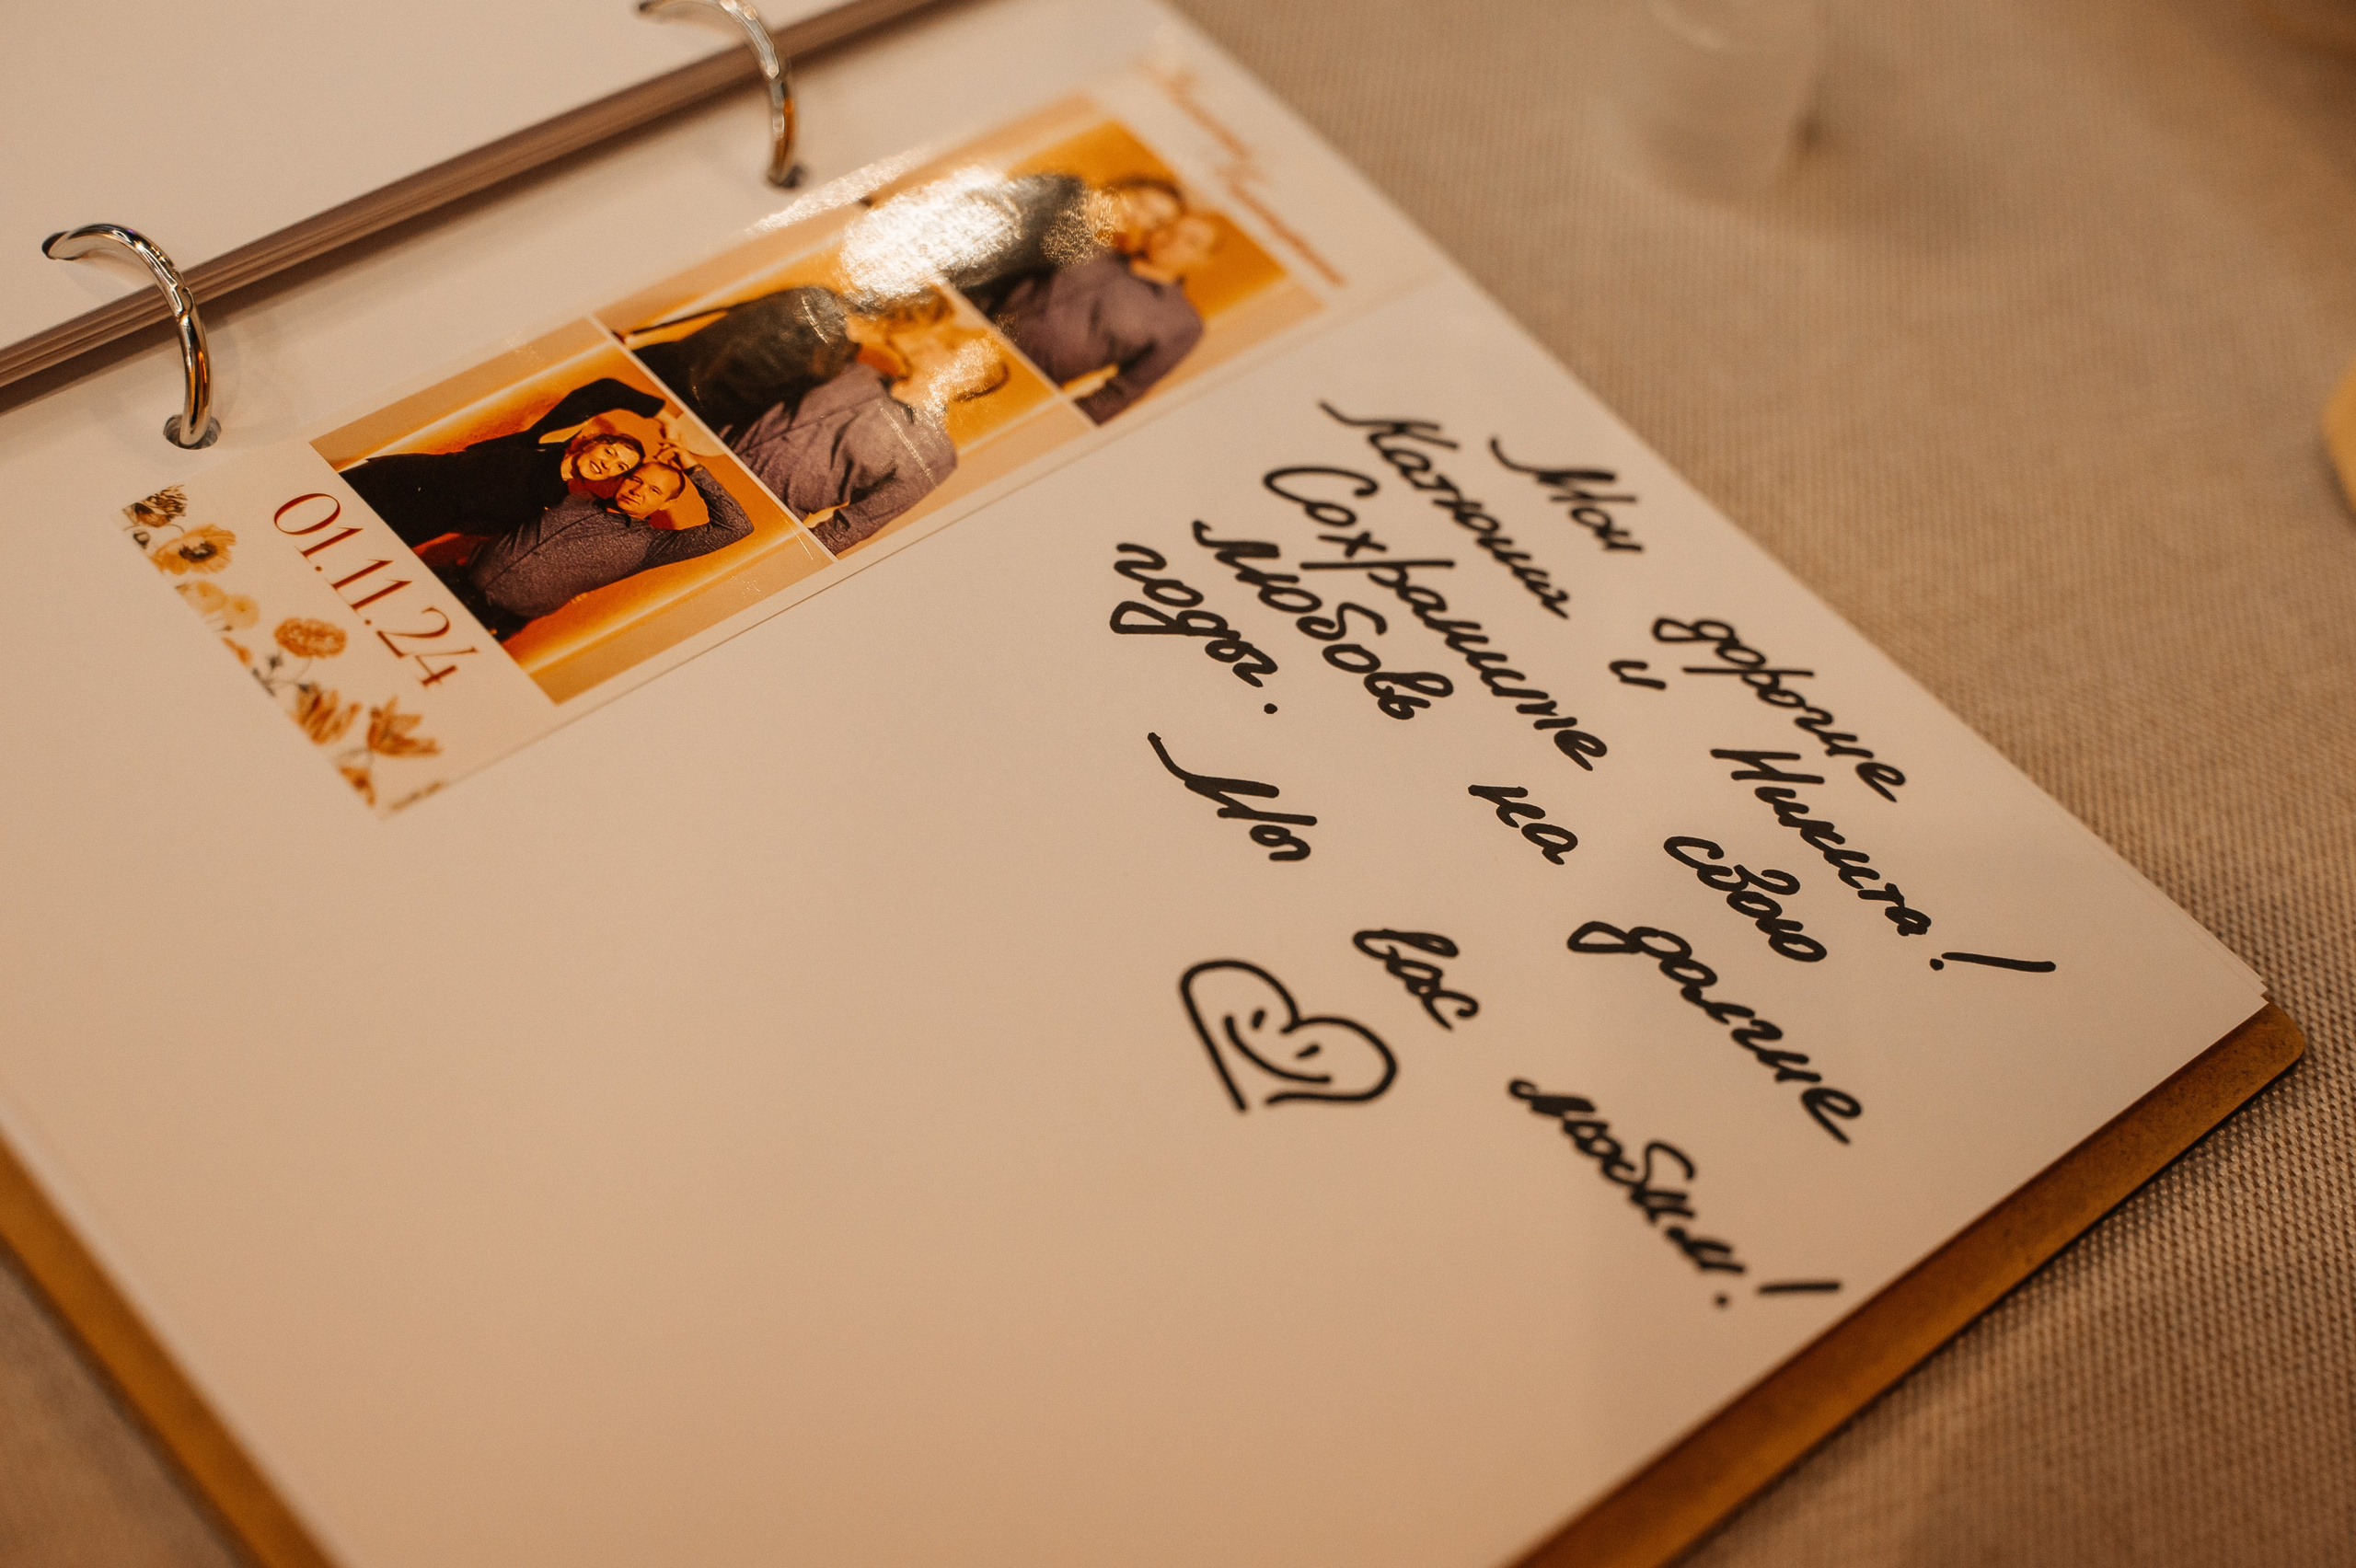 01.11.24
Мои дорогие
Катюша и Никита!
Сохраните свою
любовь на долгие
годы. Мы вас любим!